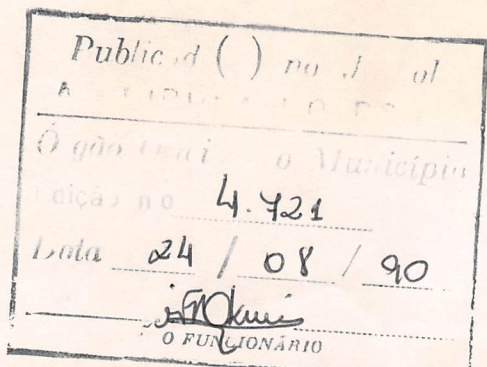 Publicad ( ) no J al
Ógão o Município
dição no 4.721
Data 24 / 08 / 90
O FUNCIONÁRIO